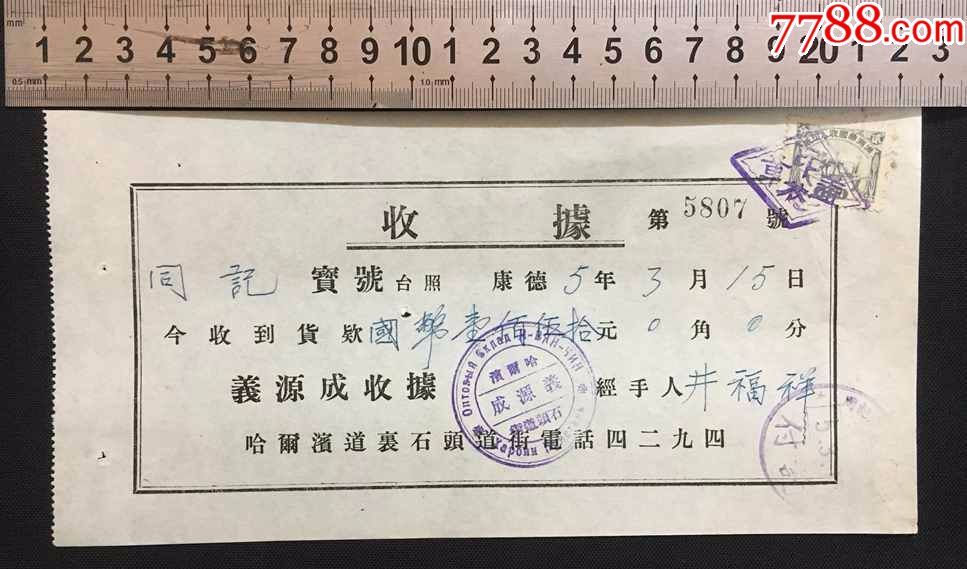 7788.com
mm 1 2 3 4 5 6 7 8 9 10 1 2 3 4 5 6 7 8 9 20 1 2 3
0.5 mm 1.0 mm
收據 第 5807 號
同記 寶號 台照 康德 5 年 3 月 15 日
今收到貨欵 國幣壹佰伍拾 元 0 角 0 分
義源成收據 經手人 井福祥
哈爾濱道裏石頭道街電話四二九四
Оптовый склад И-ЮАН-ЧИН
哈爾濱
義源成
石頭道街
付